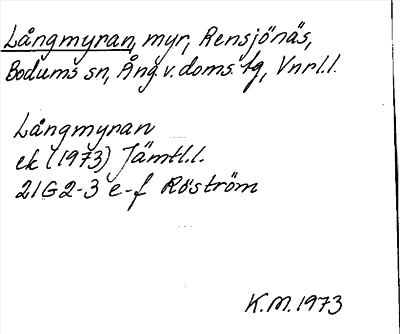 Långmyran, myr, Rensjönäs,
Bodums sn, Ång. v. doms. tg, Vnrl.l.
Långmyran
ek (1973) Jämtl.l.
21G2-3 e-f Röström
K.M. 1973